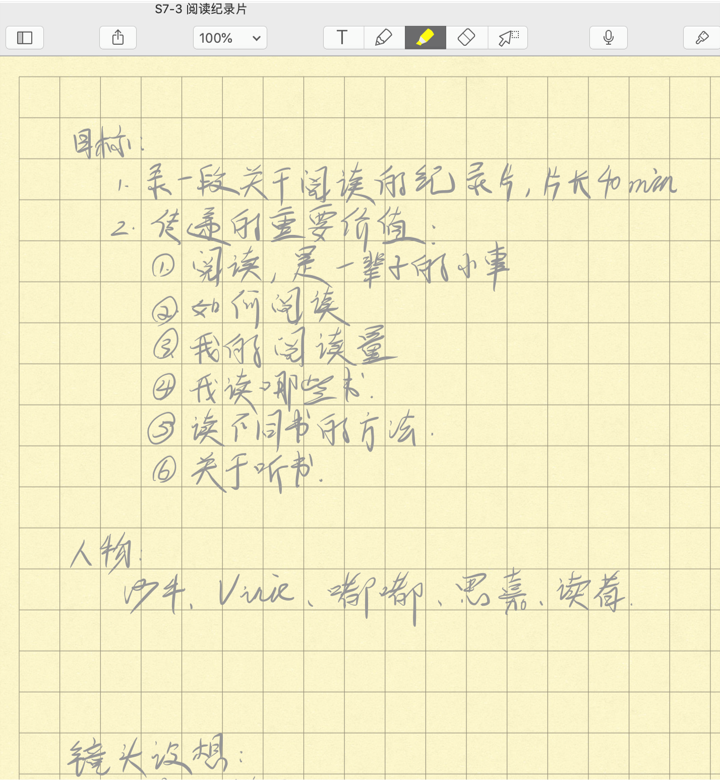 S7-3 阅读纪录片
100%
T
目标:
1. 录一段关于阅读的纪录片, 片长40min
2. 传递的重要价值:
① 阅读, 是一辈子的小事
② 如何阅读
③ 我的阅读量
④ 我读哪些书.
⑤ 读不同书的方法.
⑥ 关于听书.
人物:
少牛、Virie、嘟嘟、思嘉、读者.
镜头设想: